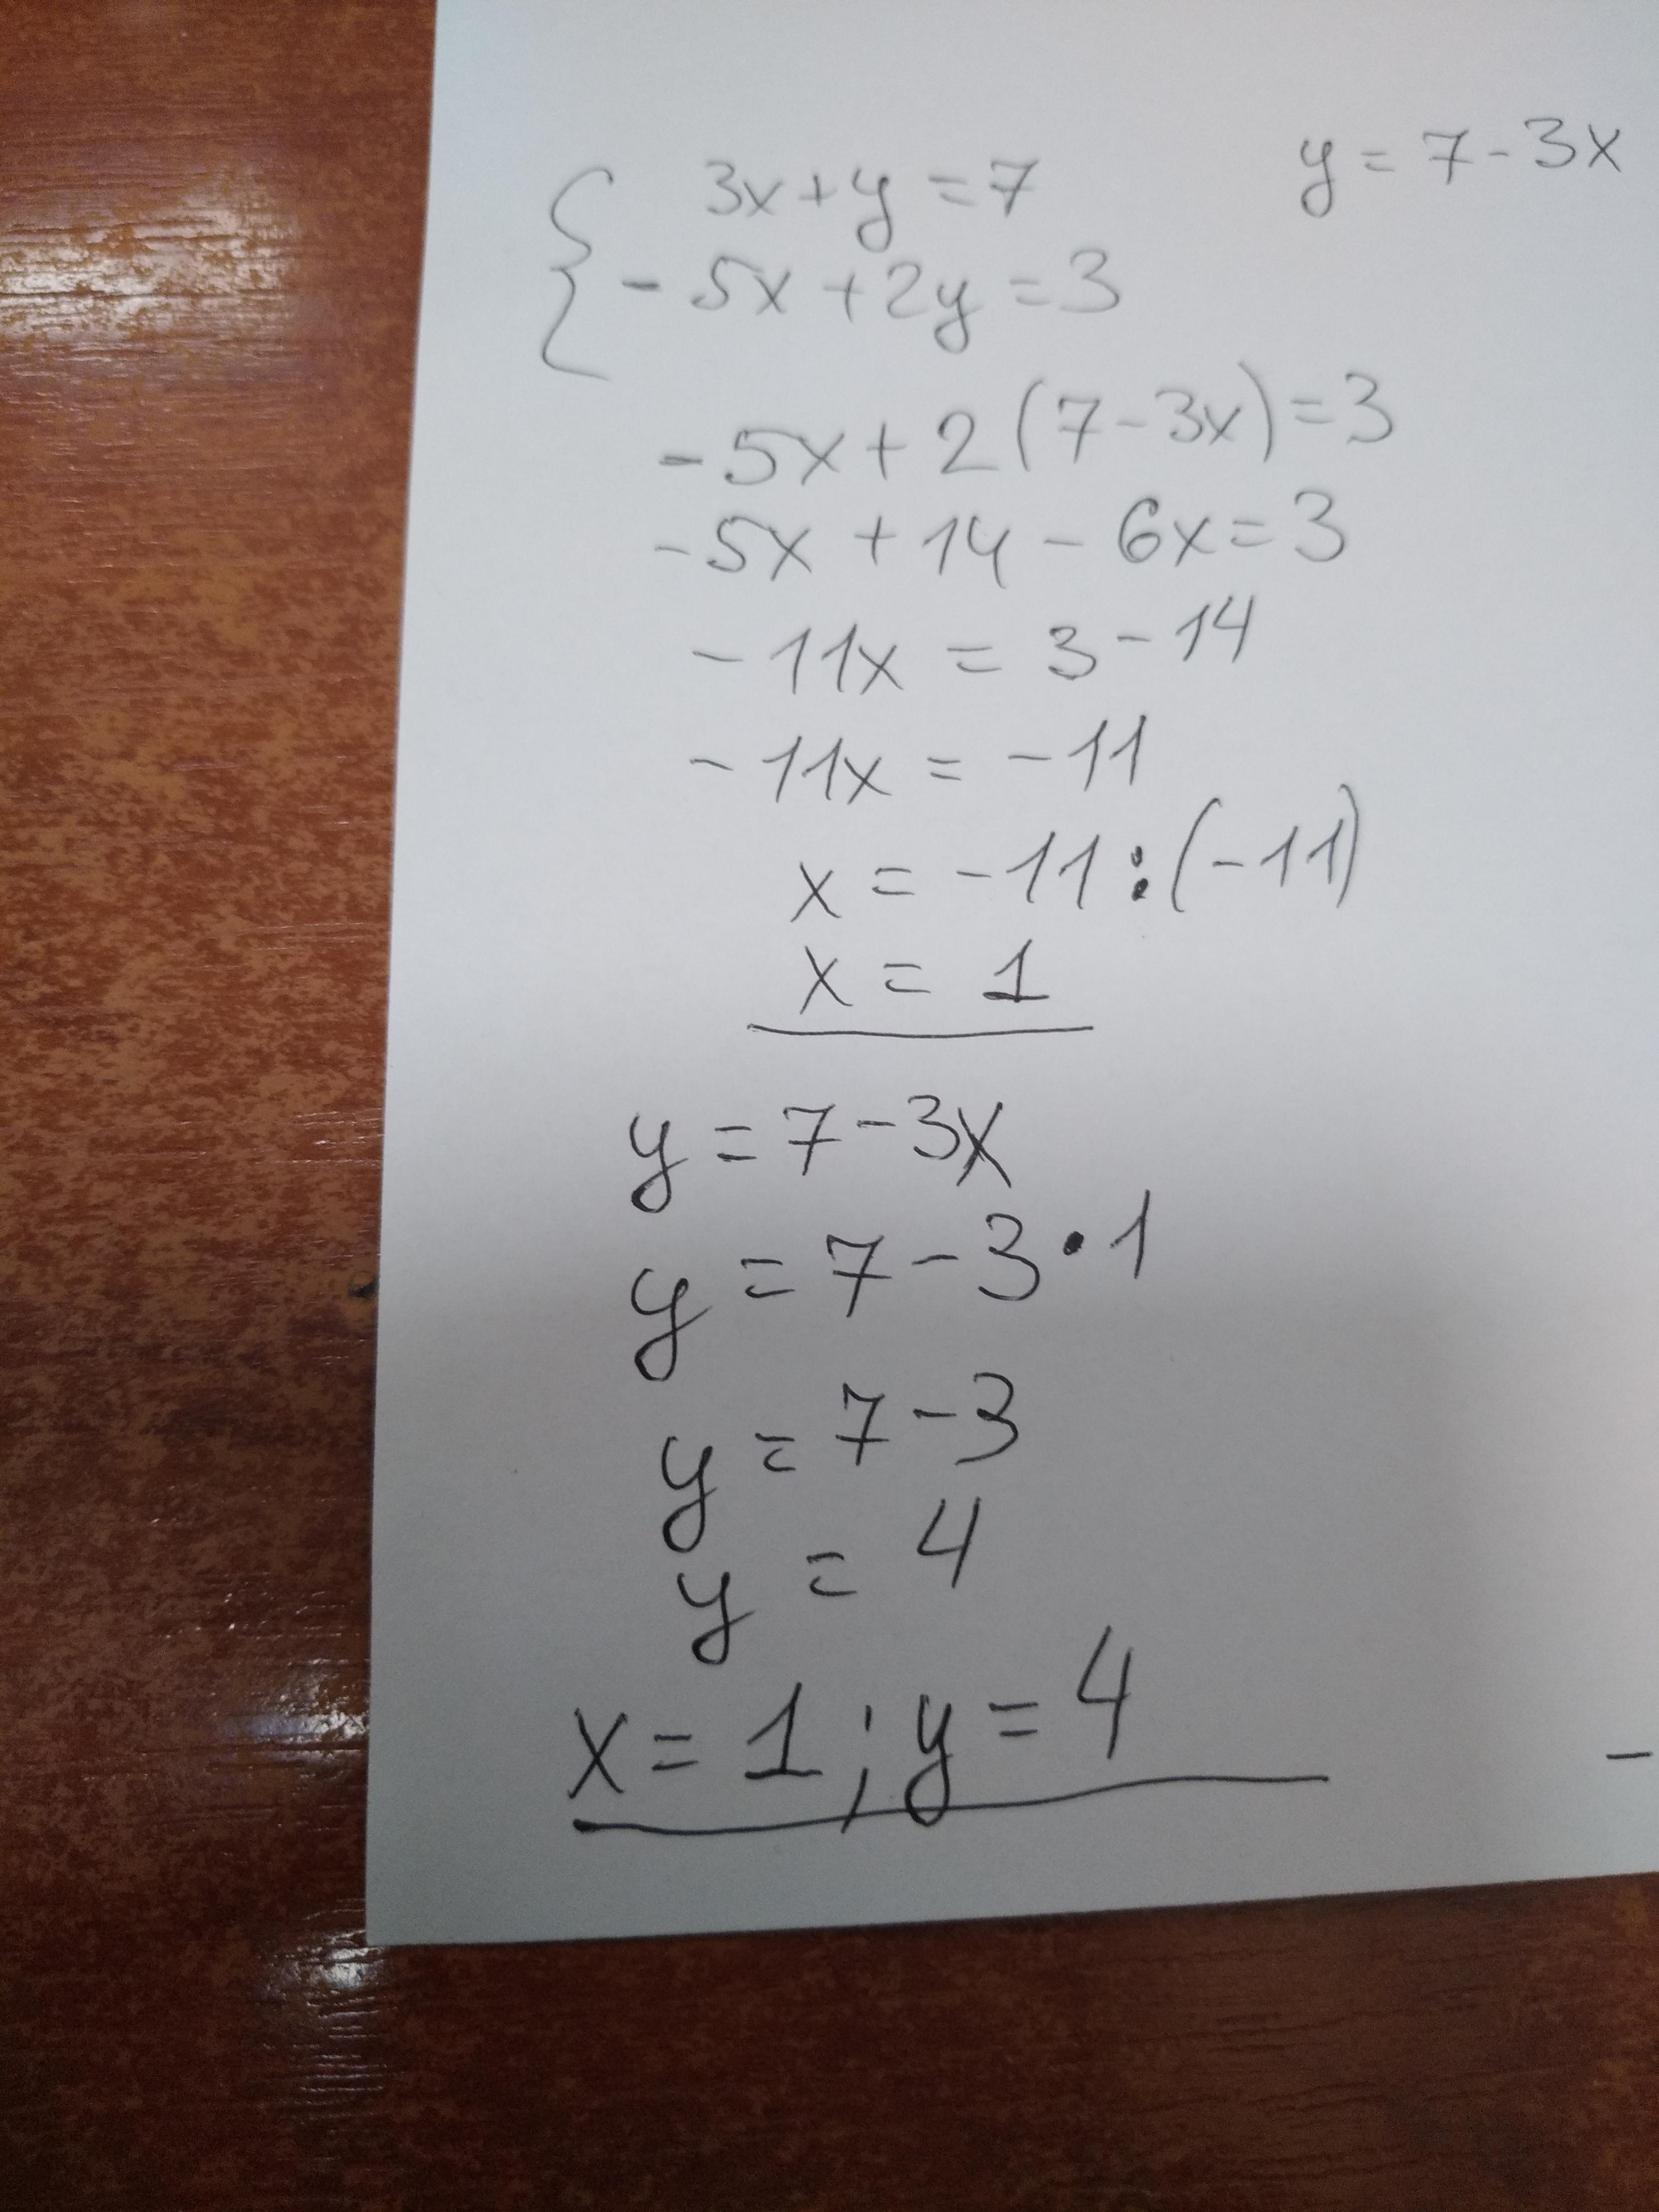 3x+y=7 y=7-3x
-5x+2y=3
-5x+2(7-3x)=3
-5x+14-6x=3
-11x=3-14
-11x=-11
x=-11:(-11)
x=1
y=7-3x
y=7-3•1
y=7-3
y=4
x=1;y=4